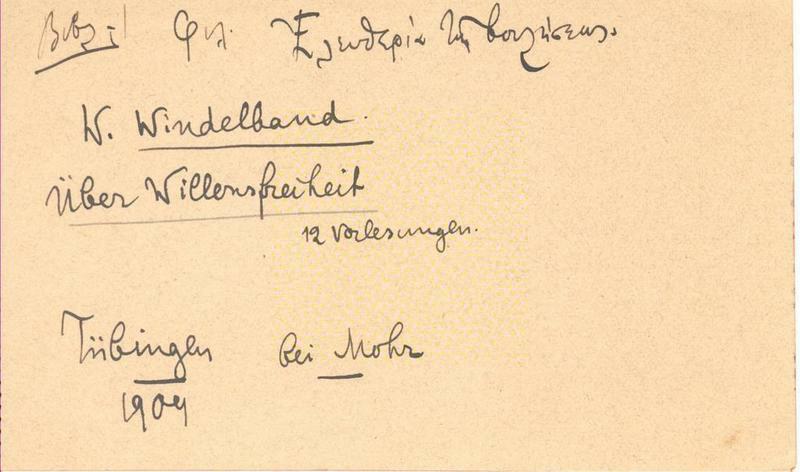 Φιλ. Ἐλευθερία τῆς βουλήσεως.
W. Windelband.
Über Willensfreiheit
12 Vorlesungen.
Tübingen bei Mohr
1904